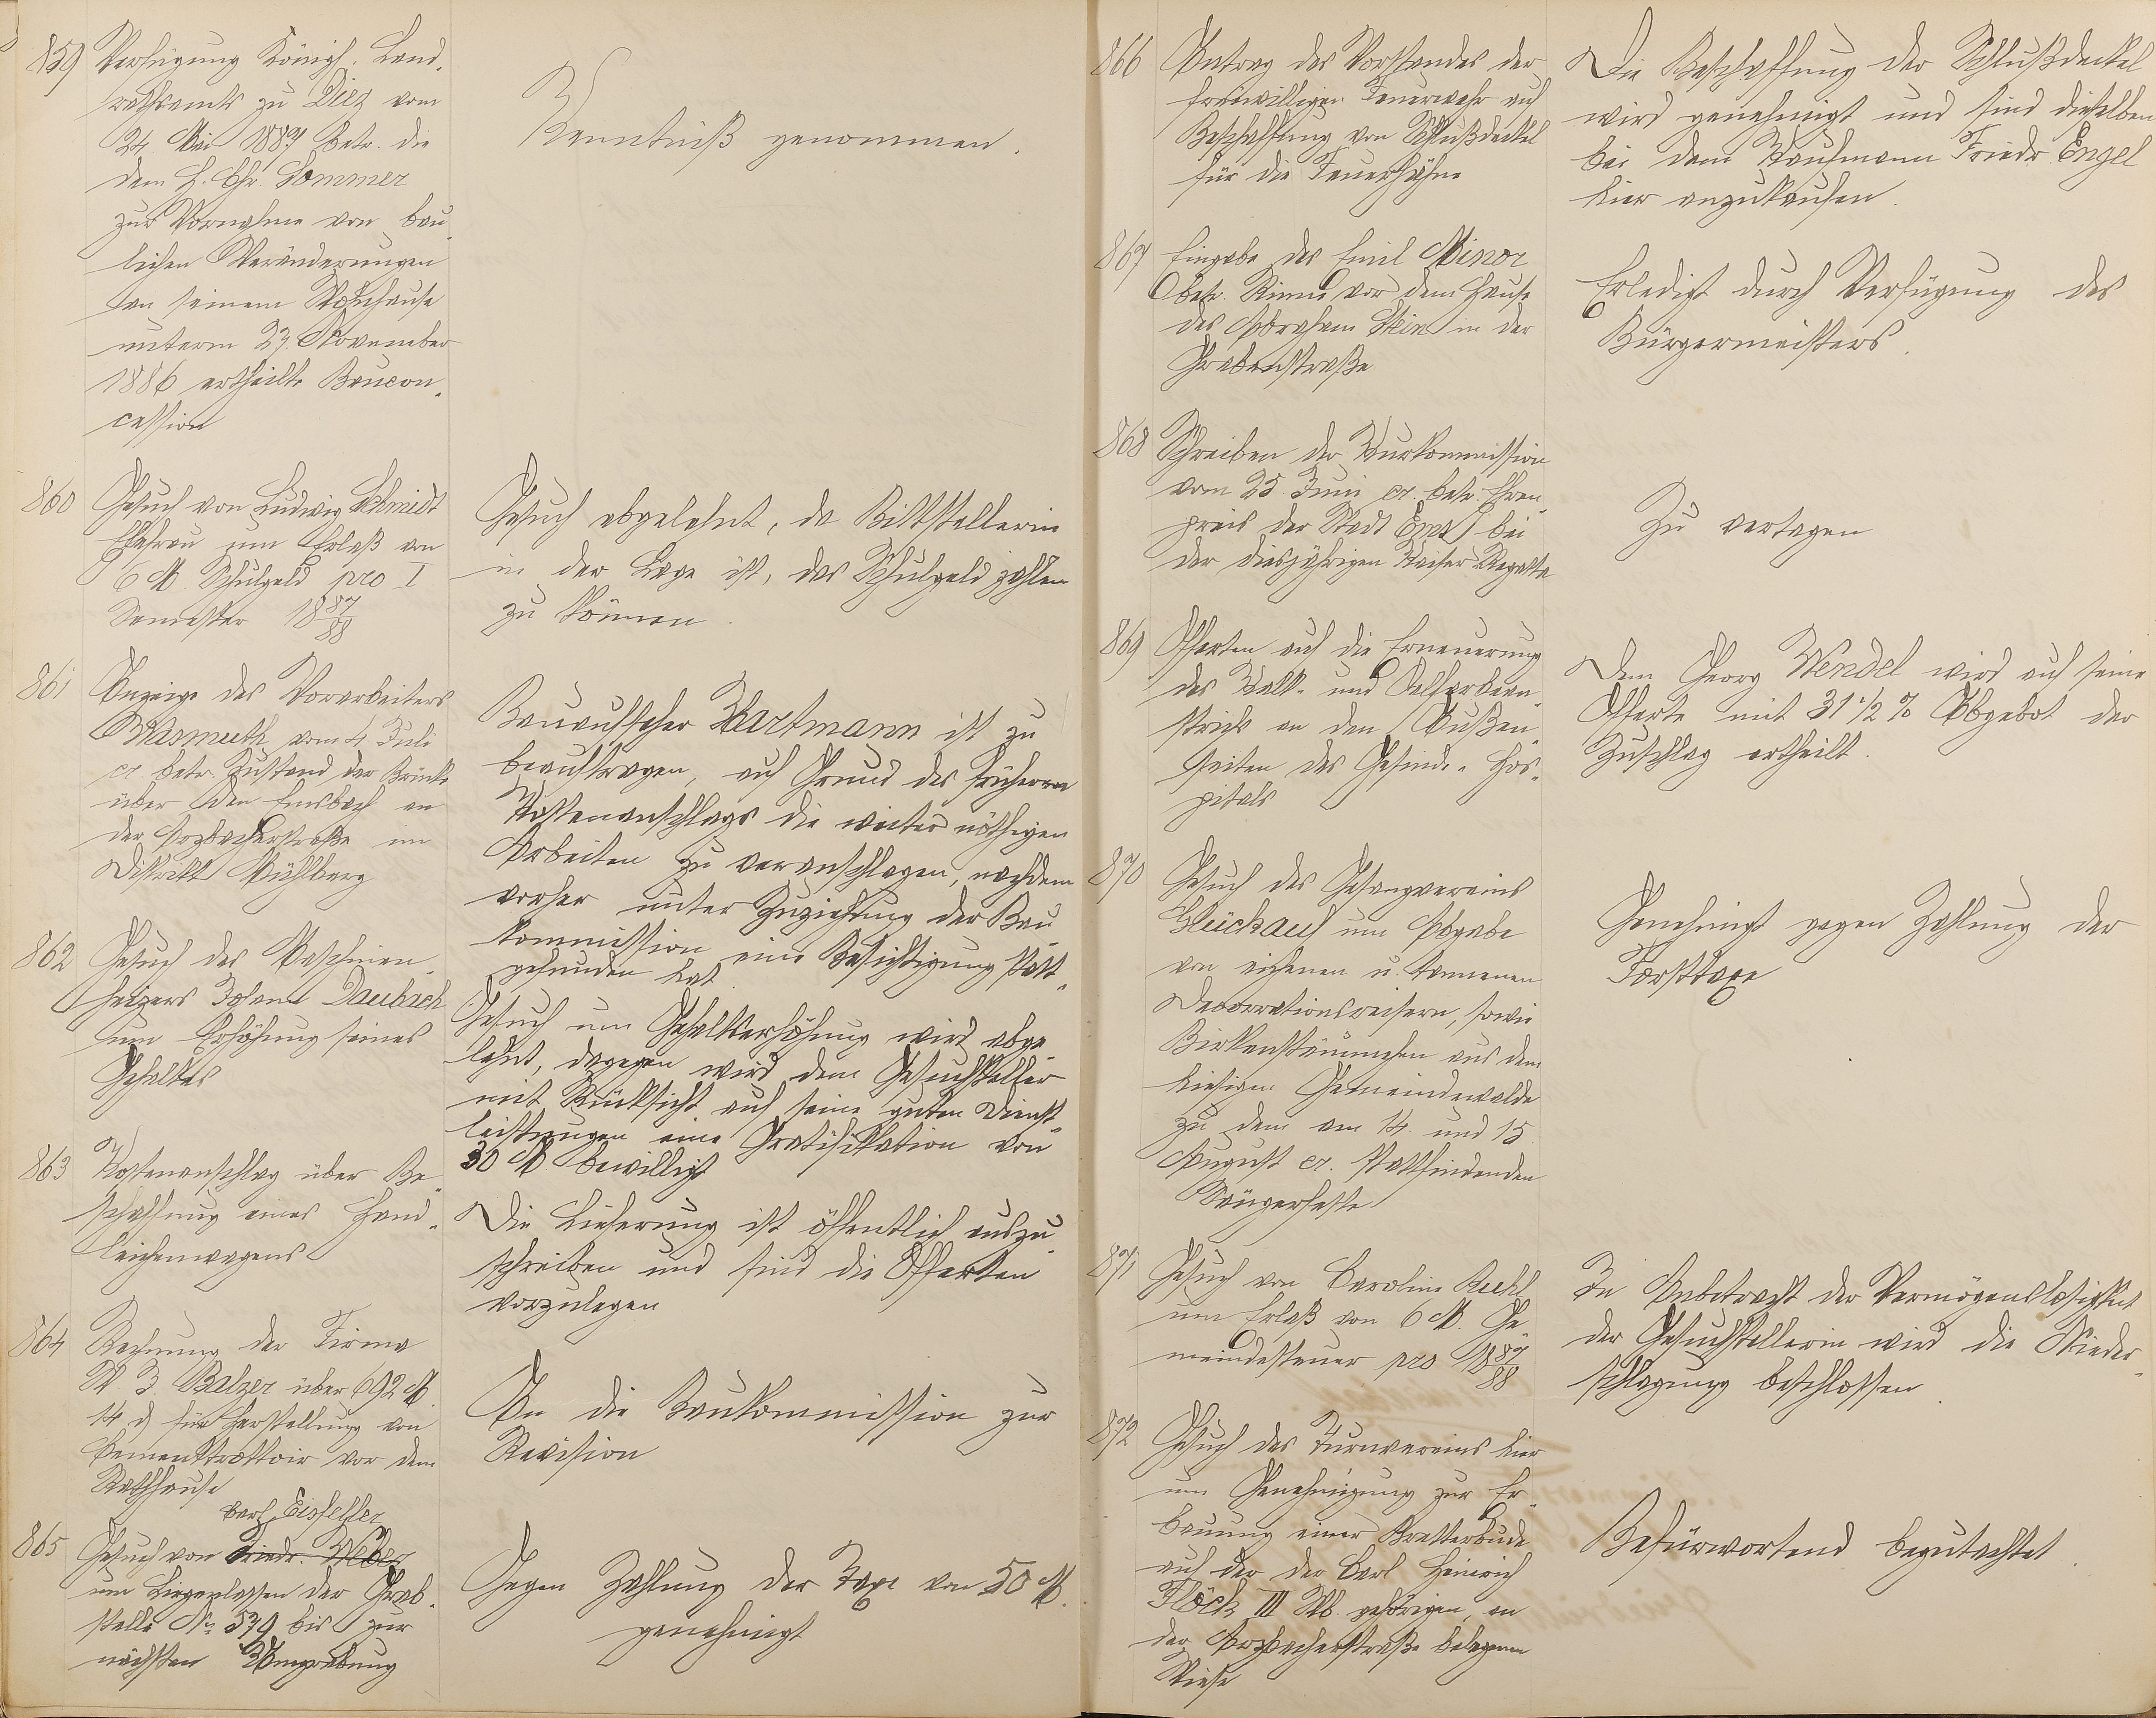 859 Verfügung Königl. Land-
rathsamts zu Diez vom
24 Mai 1887 betr. die
dem H. Chr. Sommer
zur Vornahme von bau-
lichen Veränderungen
an seinem Wohnhause
unterm 23. November
1886 ertheilte Baucon-
cession
Kenntniß genommen.
860 Gesuch von Ludwig Schmidt
Ehefrau um Erlaß von
6 M. Schulgeld pro I
Semester 1887/88
Gesuch abgelehnt, da Bittstellerin
in der Lage ist, das Schulgeld zahlen
zu können.
861 Anzeige des Vorarbeiters
Wasmuth vom 4 Juli
cr betr. Zustand der Brücke
über den Emsbach an
der Arzbacherstraße im
Distrikt Pühlberg
Bauaufseher Hartmann ist zu
beauftragen, auf Grund des früheren
Kostenanschlags die weiter nöthigen
Arbeiten zu veranschlagen, nachdem
vorher unter Zuziehung der Bau-
kommission eine Besichtigung statt-
gefunden hat.
862 Gesuch des Maschinen-
heizers Johann Daubach
um Erhöhung seines
Gehaltes
Gesuch um Gehaltserhöhung wird abge-
lehnt, dagegen wird dem Gesuchsteller
mit Rücksicht auf seine guten Dienst-
leistungen eine Gratifikation von
30 M bewilligt
863 Kostenanschlag über Be-
schaffung eines Hand-
leichenwagens
Die Lieferung ist öffentlich auszu-
schreiben und sind die Offerten
vorzulegen
864 Rechnung der Firma
W. J. Balzer über 692 M.
14 d für Herstellung von
Cementtrottoir vor dem
Rathhause
An die Baukommission zur
Revision
Carl Eisfeller
865 Gesuch von Friedr. Weber
um Liegenlassen der Grab-
stelle No 579 bis zur
nächsten Umgrabung
Gegen Zahlung der Taxe von 50 M.
genehmigt
866 Antrag des Vorstandes der
freiwilligen Feuerwehr auf
Beschaffung von Schlußdeckel
für die Feuerhähne
Die Beschaffung der Schlußdeckel
wird genehmigt und sind dieselben
bei dem Kaufmann Friedr. Engel
hier anzukaufen.
867 Eingabe des Emil Minor
betr. Rinne vor dem Hause
des Abraham Stein in der
Grabenstraße
Erledigt durch Verfügung des
Bürgermeisters.
868 Schreiben der Kurkommission
vom 25. Juni cr. betr. Ehren-
preis der Stadt Ems bei
der diesjährigen Kaiser-Regatta
Zu vertagen
869 Offerten auf die Erneuerung
des Kalk- und Oelfarbean-
strichs an den Außen-
seiten des Gesinde-Hos-
pitals
Dem Georg Wendel wird auf seine
Offerte mit 31 1/2 % Abgebot der
Zuschlag ertheilt.
870 Gesuch des Gesangvereins
Glückauf um Abgabe
von eichenen u. tannenen
Decorationsreisern, sowie
Birkenstämmchen aus dem
hiesigen Gemeindewalde
zu dem am 14. und 15.
August cr. stattfindenden
Sängerfeste
Genehmigt gegen Zahlung der
Forsttaxe
871 Gesuch von Caroline Ruhl
um Erlaß von 6 M. Ge-
meindesteuer pro 1887/88
In Anbetracht der Vermögenslosigkeit
der Gesuchstellerin wird die Nieder-
schlagung beschlossen.
872 Gesuch des Turnvereins hier
um Genehmigung zur Er-
bauung einer Bretterbude
auf der der Carl Heinrich
Flöck III Wb. gehörigen, an
der Arzbacherstraße belegenen
Wiese
Befürwortend begutachtet.